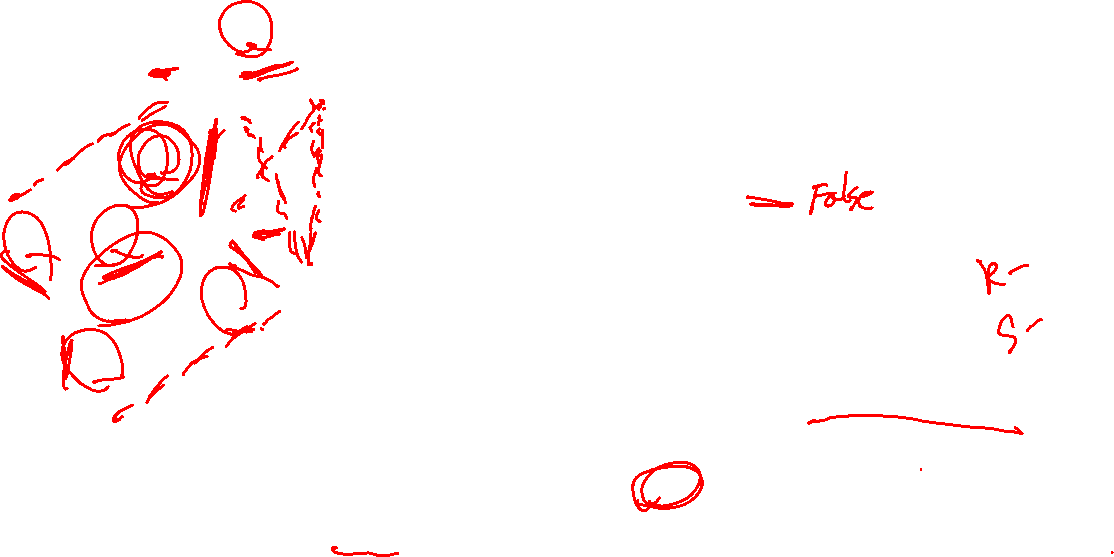 False
R
S